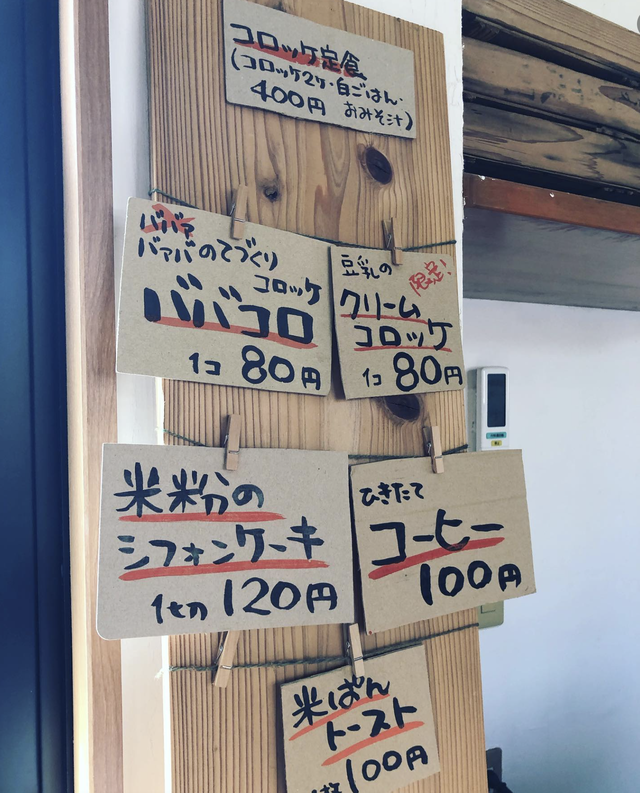 コロッケ定食
(コロッケ2ケ・白ごはん・
400円 おみそ汁)
ババァ
バァバのてづくり
コロッケ
ババコロ
1コ 80円
豆乳の
限定!
クリーム
コロッケ
1コ 80円
米粉の
シフォンケーキ
1切 120円
ひきたて
コーヒー
100円
米ぱん
トースト
100円